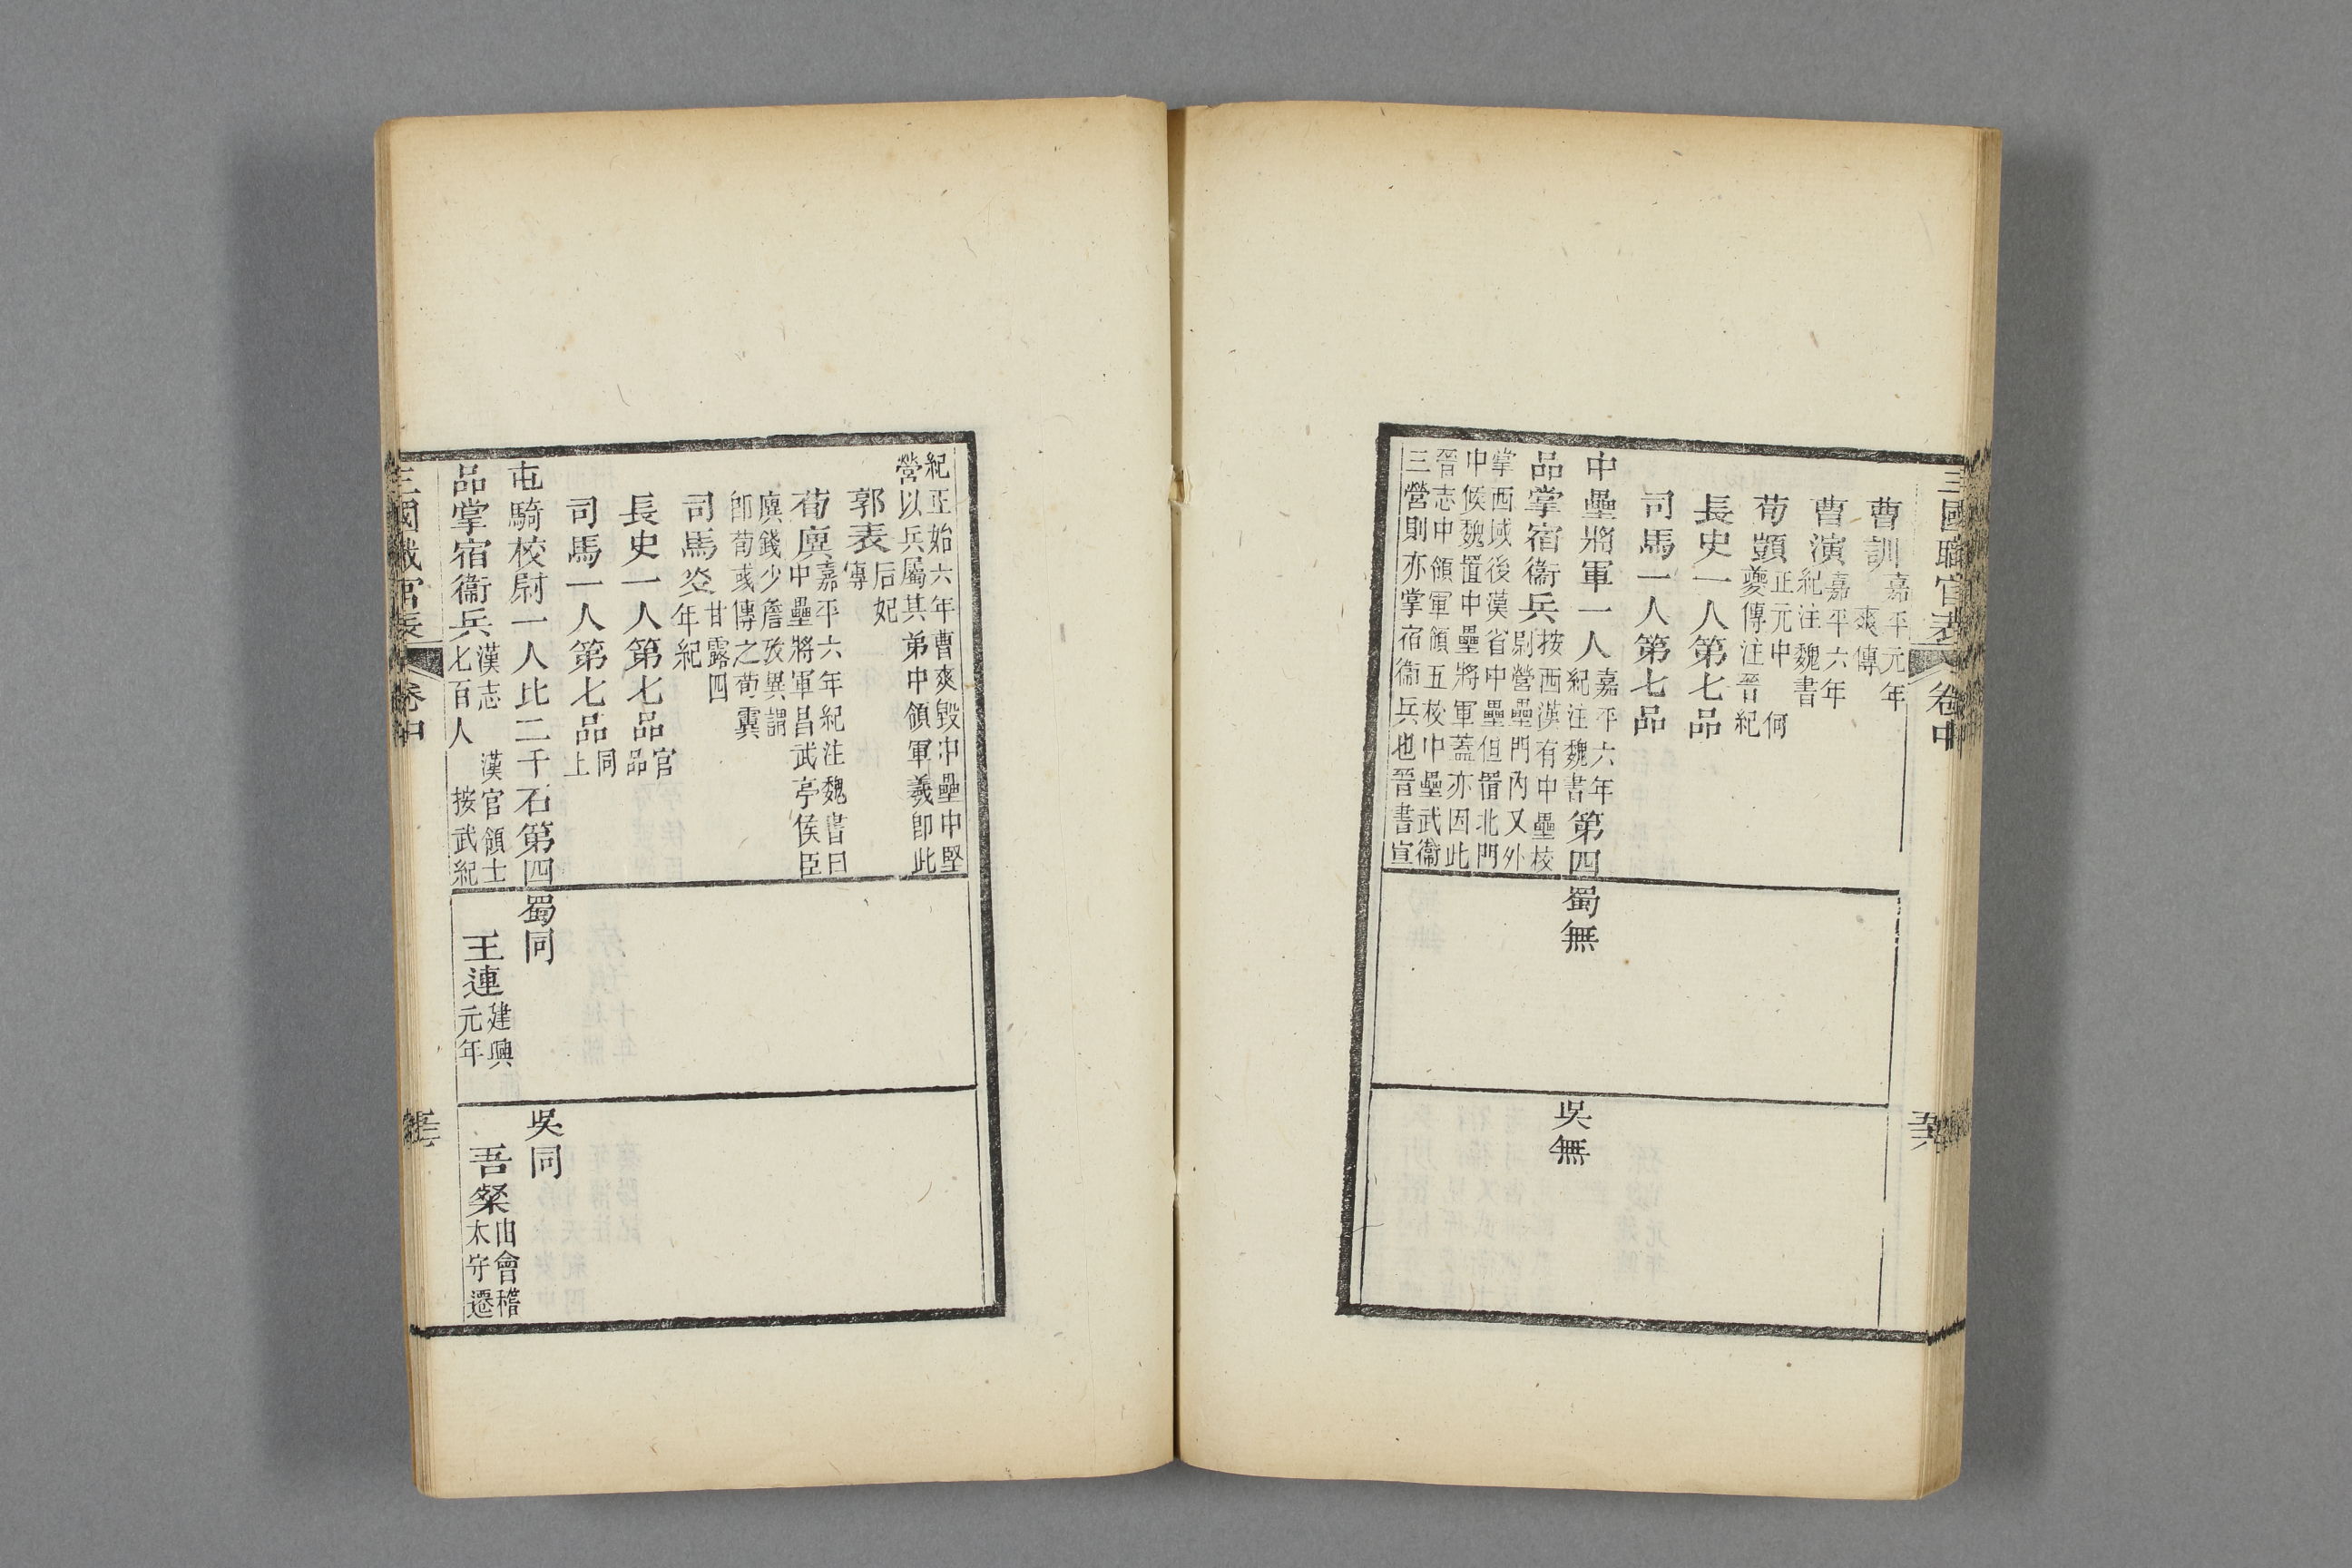 三國職官表 卷中
曹訓嘉平元年
爽傳
曹演嘉平六年
紀注魏書
荀顗正元中何
夔傳注晉紀
長史一人第七品
司馬一人第七品
中壘將軍一人嘉平六年
紀注魏書
第四
品掌宿衞兵按西漢有中壘校
尉營壘門內又外
掌西域後漢省中壘但置北門
中候魏置中壘將軍蓋亦因此
晉志中領軍領五校中壘武衞
三營則亦掌宿衞兵也晉書宣
蜀無
吳無
紀正始六年曹爽毀中壘中堅
營以兵屬其弟中領軍羲卽此
郭表后妃
傳
荀廙嘉平六年紀注魏書曰
中壘將軍昌武亭侯臣
廙錢少詹攷異謂
卽荀彧傳之荀霬
司馬炎甘露四
年紀
長史一人第七品官
品
司馬一人第七品同
上
屯騎校尉一人比二千石第四
品掌宿衞兵漢志 漢官領士
七百人 按武紀
蜀同
王連建興
元年
吳同
吾粲由會稽
太守遷
三國職官表 卷中